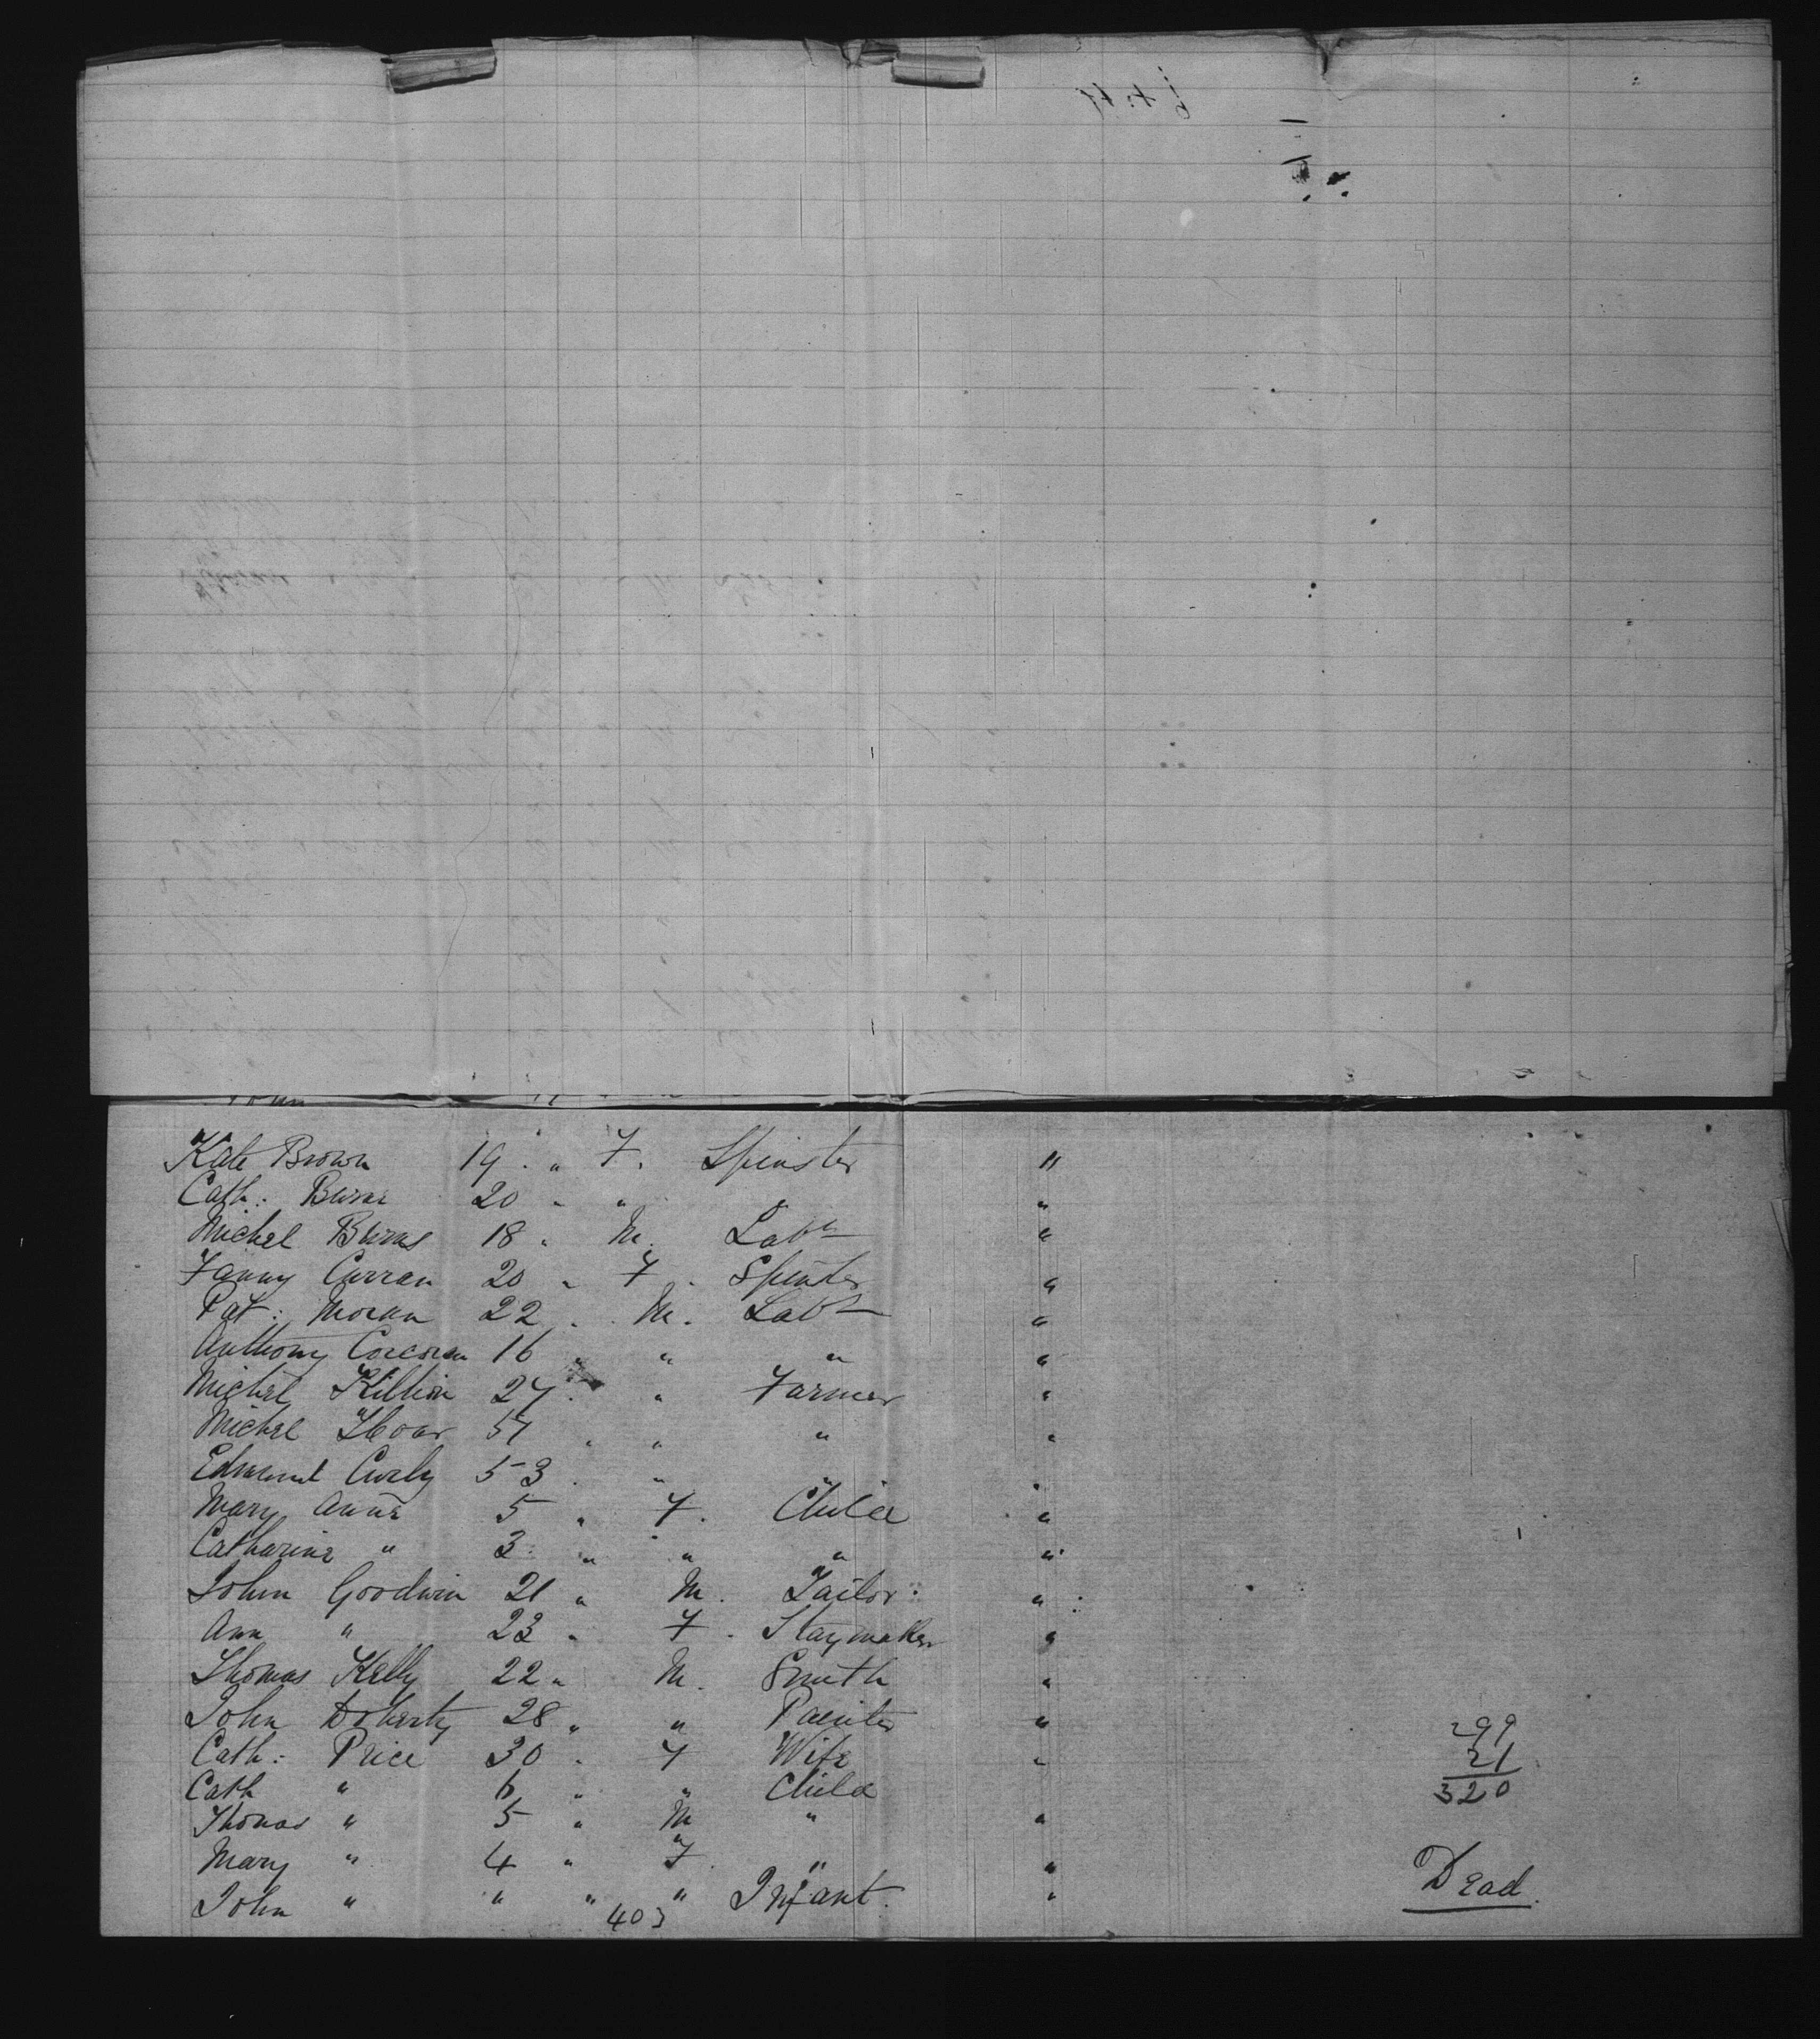 Kate Brown 19 . " F. Spinster "
Cath: Burns 20 " " " "
Michel Burns 18 " M. Labr "
Fanny Curran 20 " F. Spinster "
Pat: Moran 22 " M. Labr "
Anthony Corcoran 16 " " " "
Michel Killion 27 " " Farmer "
Michel Hoar 51 " " " "
Edmund Curly 53 " " " "
Mary Anne 5 " F. Child "
Catharine " 3 " " " "
John Goodwin 21 " M. Tailor "
Ann " 23 " F. Staymaker "
Thomas Kelly 22 " M. Smith "
John Doherty 28 " " Painter "
299
Cath: Price 30 " F Wife "
21
Cath " 6 " " Child
320
Thomas " 5 " M " "
Mary " 4 " F. " "
John " " " " Infant. " Dead.
403